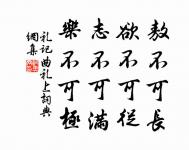 敖不可長
欲不可從
志不可滿
樂不可極
礼记曲礼上詞典
網集